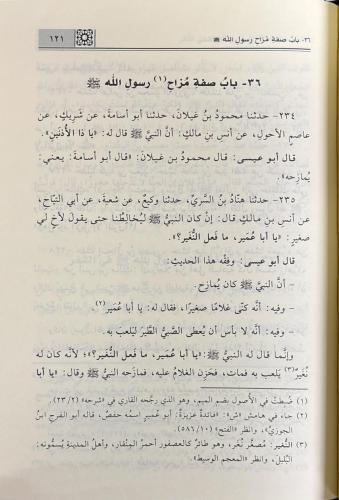 ٣٦- بابُ صفةِ مُزاحِ رسول الله ﷺ
١٢١
٣٦- بابُ صفةِ مُزاحِ(١) رسولِ الله ﷺ
٢٣٤- حدثنا محمودُ بنُ غَيلانَ، حدثنا أبو أسامةَ، عن شَريكٍ، عن
عاصمٍ الأحولِ، عن أنسِ بنِ مالكٍ: أنَّ النبيَّ ﷺ قال له: «يا ذا الأُذنَينِ».
قال أبو عيسى: قال محمودُ بن غَيلانَ: «قال أبو أسامةَ: يعني:
يُمازِحه».
٢٣٥- حدثنا هنَّادُ بنُ السَّريِّ، حدثنا وكيعٌ، عن شعبةَ، عن أبي التيَّاحِ،
عن أنسِ بنِ مالكٍ قال: إنْ كان النبيُّ ﷺ ليُخالِطُنا حتى يقول لأخٍ لي
صغيرٍ: «يا أبا عُمَير، ما فَعل النُّغَير؟».
قال أبو عيسى: وفِقْه هذا الحديثِ:
- أنَّ النبيَّ ﷺ كان يُمازِح.
- وفيه: أنَّه كنّى غلامًا صغيرًا، فقال له: يا أبا عُمَير(٢).
- وفيه: أنَّه لا بأسَ أن يُعطى الصَّبيُّ الطَّيرَ ليَلعبَ به.
وإنَّما قال له النبيُّ ﷺ: «يا أبا عُمَير، ما فَعل النُّغَير؟»؛ لأنَّه كان له
نُغَيرٌ(٣) يَلعب به فمات، فحَزِن الغلامُ عليه، فمازحه النبيُّ ﷺ وقال: «يا أبا
(١) ضُبطتْ في الأصول بضم الميم، وهو الذي رجَّحه القاري في «شرحه» (٢/ ٢٣).
(٢) جاء في هامش «ش»: «فائدةٌ عزيزةٌ: أبو عُمير اسمُه حفصٌ، قاله أبو الفرج ابنُ
الجوزيِّ»، وانظر «الفتح» (١٠/ ٥٨٦).
(٣) النُّغير: مُصغَّر نُغَر، وهو طائرٌ كالعصفور أحمرُ المِنْقار، وأهلُ المدينةِ يُسمُّونه:
البُلبلَ، وانظر «المعجم الوسيط».